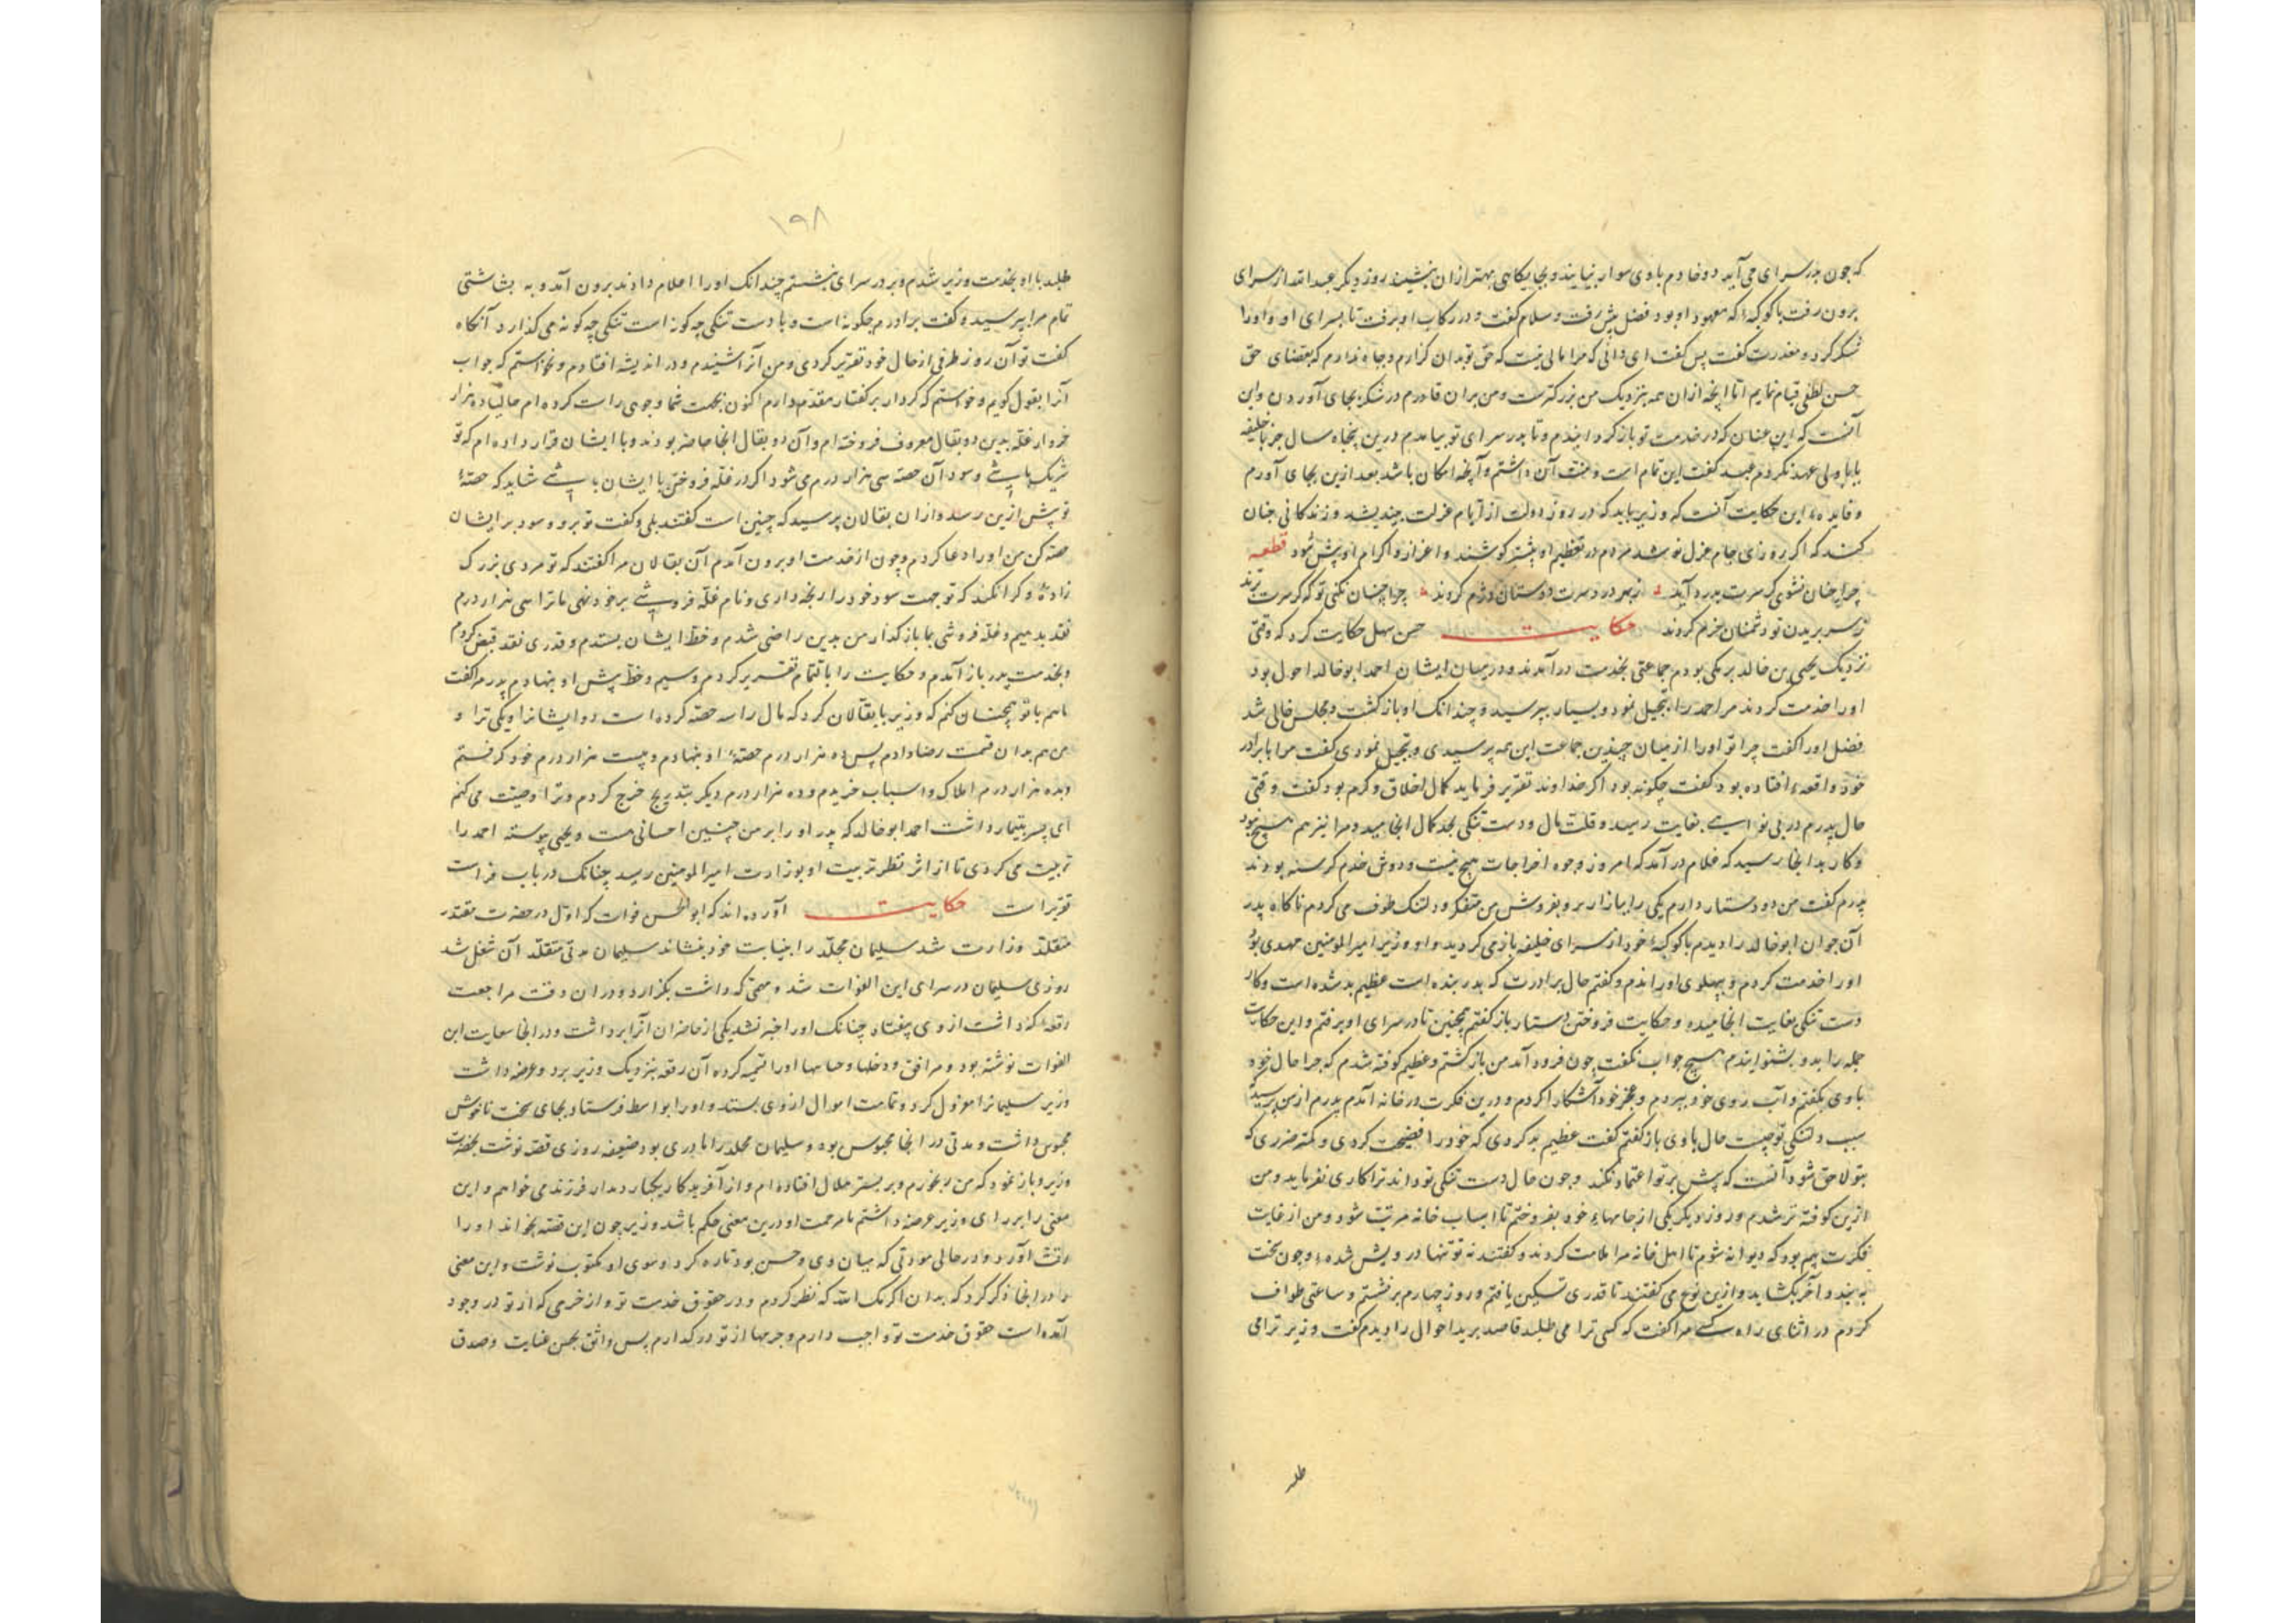 که چون بدر سرای می آید دو خادم با وی سوار نیایند و بجایگاهی بهتر از ان بنشیند روز دیگر عبدالله از سرای
برون رفت با کوکبهٔ که معهود او بود فضل پیش رفت و سلام گفت و در رکاب او برفت تا بسرای او و او را
شکر کرد و معذرت گفت پس گفت ای دانی که مرا مالی نیست که حق تو بدان گزارم و جاه ندارم که بقضای حق
حسن لطفی قیام نمایم اما آنچه از ان همه بنزدیک من بزرگترست و من بران قادرم در شکر بجای آوردن و این
آنست که این عنان که در خدمت تو باز گردانیدم و تا بدر سرای تو بیامدم درین پنجاه سال جز با خلیفه
یا با ولی عهد نکردم عبد گفت این تمام است و منت آن داشتم و آنچه امکان باشد بعد ازین بجای آورم
و فایدهٔ این حکایت آنست که وزیر باید که در روز دولت از ایام عزلت بیندیشد و زندگانی چنان
کند که اگر روزی جام عزل نوشد مردم در تعظیم او بیشتر کوشند و اعزاز و اکرام او بیش شود قطعه
چرا چنان نشوی کرت بدرد آید ز بهر درد سرت دوستان دژم گردند چرا چنان نکنی تو که گر سرت برند
ز سر بریدن تو دشمنان خرم گردند حکایت حسن سهل حکایت کرد که وقتی
نزدیک یحیی بن خالد برمکی بودم جماعتی بخدمت در آمدند و در میان ایشان احمد ابو خالد احول بود
او را خدمت کردند مر احمد را تبجیل نمود و بسیار بپرسید و چندانک او باز گشت و مجلس خالی شد
فضل او را گفت چرا تو او را از میان چندین جماعت این همه پرسیدی و تبجیل نمودی گفت مرا با برادر
خود واقعهٔ افتاده بود گفت چگونه بود اگر خداوند تقریر فرماید کمال اخلاق و کرم بود گفت وقتی
حال پدرم در بی نوایی بغایت رسید و قلت مال و دست تنگی بحد کمال انجامید و مرا نیز هم هیچ نبود
و کار بدانجا رسید که غلام در آمد که امروز وجوه اخراجات هیچ نیست و دوش خدم گرسنه بودند
پدرم گفت من دو دستار دارم یکی را ببازار بر و بفروش من متفکر و دلتنگ طوف می کردم ناگاه پدر
آن جوان ابو خالد را دیدم با کوکبهٔ خود از سرای خلیفه باز می گردید و او وزیر امیر المومنین مهدی بود
او را خدمت کردم و بپهلوی او راندم و گفتم حال برادرت که پدر بنده است عظیم بد شده است و کار
دست تنگی بغایت انجامیده و حکایت فروختن دستار باز گفتم همچنین تا در سرای او برفتم و این حکایت
جمله را بدو بشنوانیدم هیچ جواب نگفت چون فرود آمد من باز گشتم و عظیم کوفته شدم که چرا حال خود
با وی بگفتم و آب روی خود ببردم و عجز خود آشکارا کردم و درین فکرت در خانه آمدم پدرم از من پرسید که
سبب دلتنگی تو چیست حال با وی باز گفتم گفت عظیم بد کردی که خود را فضیحت کردی و کمتر ضرری که
بتو لاحق شود آنست که پیش بر تو اعتماد نکند و چون حال دست تنگی تو داند ترا کاری نفرماید و من
ازین کوفته تر شدم و روز دیگر یکی از جامهای خود بفروختم تا اسباب خانه مرتب شود و من از غایت
فکرت بیم بود که دیوانه شوم تا اهل خانه مرا ملامت کردند و گفتند نه تو تنها درویش شدهٔ و چون سخت
ببندد آخر بگشاید و ازین نوع می گفتند تا قدری تسکین یافتم و روز چهارم بر نشستم و ساعتی طواف
کردم در اثنای راه کسی مرا گفت که کسی ترا می طلبد قاصد برید احوال را دیدم گفت وزیر ترا می
طلبد
۱۹۸
طلبد با او بخدمت وزیر شدم و بر در سرای بنشستم چندانک او را اعلام دادند برون آمد و به بشاشتی
تمام مرا بپرسید و گفت برادرم چگونه است و با دست تنگی چه گونه است تنگی چه گونه می گذارد آنگاه
گفت تو آن روز طرفی از حال خود تقریر کردی و من آنرا شنیدم و در اندیشه افتادم و نخواستم که جواب
آنرا بقول گویم و خواستم که کردار بر گفتار مقدم دارم اکنون بجهت شما وجوهی راست کرده ام حالیا ده هزار
خروار غله بدین دو بقال معروف فروخته ام و آن دو بقال آنجا حاضر بودند و با ایشان قرار داده ام که تو
شریک باشی و سود آن حصه سی هزار درم می شود اگر در غله فروختن با ایشان باشی شاید که حصهٔ
تو بیش ازین رسد و از ان بقالان پرسید که چنین است گفتند بلی و گفت تو برو و سود بر ایشان
حصه کن من او را دعا کردم و چون از خدمت او برون آمدم آن بقالان مرا گفتند که تو مردی بزرگ
زادهٔ و کرا نکند که تو جهت سود خود را رنجه داری و نام غله فروشی بر خود نهی ما ترا سی هزار درم
نقد بدهیم و غله فروشی بما باز گذار من بدین راضی شدم و خط ایشان بستدم و قدری نقد قبض کردم
و بخدمت پدر باز آمدم و حکایت را با تمام تقریر کردم و سیم و خط پیش او بنهادم پدر مرا گفت
ما هم با تو همچنان کنم که وزیر با بقالان کرد که مال را سه حصه کرده است دو ایشانرا و یکی ترا و
من هم بدان قسمت رضا دادم پس ده هزار درم حصهٔ او بنهادم و بیست هزار درم خود گرفتم
و بده هزار درم املاک و اسباب خریدم و ده هزار درم دیگر بتدریج خرج کردم و ترا وصیت می کنم
ای پسر بتیمار داشت احمد ابو خالد که پدر او را بر من چنین احسانی است و یحیی پیوسته احمد را
تربیت می کردی تا از اثر نظر تربیت او بوزارت امیر المومنین رسید چنانک در باب فراست
تقریر است حکایت آورده اند که ابو الحسن فرات که اول در حضرت مقتدر
متقلد وزارت شد سلیمان مخلد را بنیابت خود بنشاند سلیمان مدتی متقلد آن شغل شد
روزی سلیمان در سرای ابن الفرات شد و مهمی که داشت بگزارد و در ان وقت مراجعت
رقعهٔ که داشت از وی بیفتاد چنانک او را خبر نشد یکی از حاضران آنرا برداشت و در آنجا سعایت ابن
الفرات نوشته بود و مرافق و دخلها و حسابها او را تتمیه کرده آن رقعه بنزدیک وزیر برد و عرضه داشت
وزیر سلیمانرا معزول کرد و تمامت اموال از وی بستد و او را بواسط فرستاد بجای سخت ناخوش
محبوس داشت و مدتی در آنجا محبوس بود و سلیمان مخلد را مادری بود ضعیفه روزی قصه نوشت بحضرت
وزیر و باز نمود که من رنجورم و بر بستر ملال افتاده ام و از آفریدگار یکبار دیدار فرزند می خواهم و این
معنی را بر رای وزیر عرضه داشتم تا مرحمت او درین معنی حکم باشد وزیر چون این قصه بخواند او را
رقت آورد و در حالی مودتی که میان وی و حسن بود تازه کرد و سوی او مکتوب نوشت و این معنی
را در آنجا ذکر کرد که بدان اکرمک الله که نظر کردم و در حقوق خدمت تو و از خرمی که از تو در وجود
آمده است حقوق خدمت تو واجب دارم و جرمها از تو در گذارم پس واثق بحسن عنایت و صدق